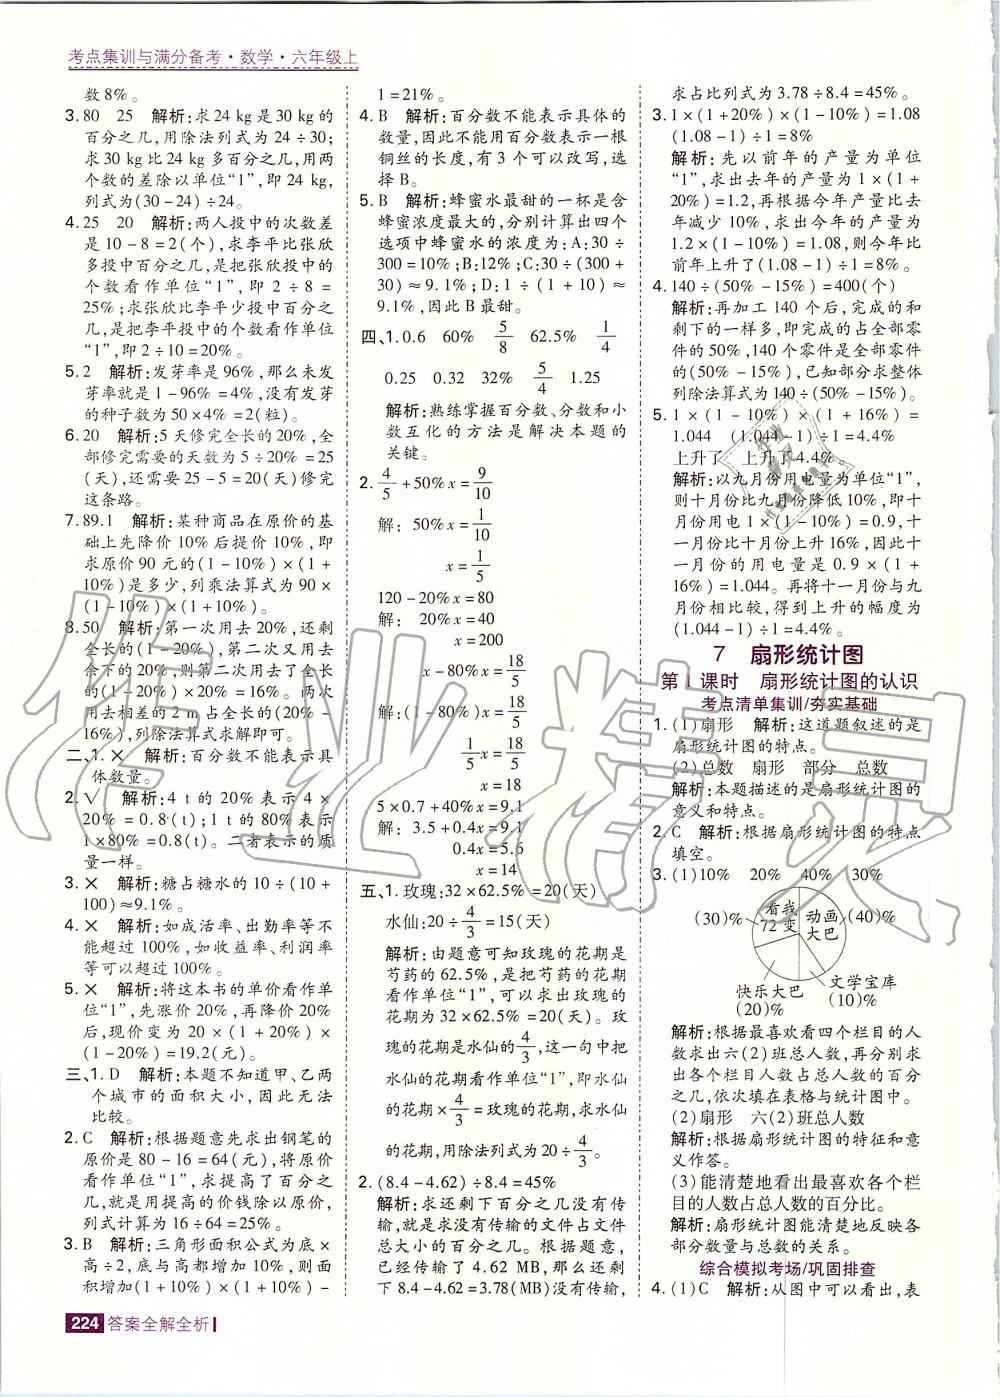 考点集训与满分备考·数学·六年级上
数8%。
3.80 25 解析:求24 kg是30 kg的
百分之几,用除法列式为24÷30;
求30 kg比24 kg多百分之几,用两
个数的差除以单位“1”,即24 kg,
列式为(30-24)÷24。
4.25 20 解析:两人投中的次数差
是10-8=2(个),求李平比张欣
多投中百分之几,是把张欣投中的
个数看作单位“1”,即2÷8=
25%;求张欣比李平少投中百分之
几,是把李平投中的个数看作单位
“1”,即2÷10=20%。
5.2 解析:发芽率是96%,那么未发
芽率就是1-96%=4%,没有发芽
的种子数为50×4%=2(粒)。
6.20 解析:5天修完全长的20%,全
部修完需要的天数为5÷20%=25
(天),还需要25-5=20(天)修完
这条路。
7.89.1 解析:某种商品在原价的基
础上先降价10%后提价10%,即
求原价90元的(1-10%)×(1+
10%)是多少,列乘法算式为90×
(1-10%)×(1+10%)。
8.50 解析:第一次用去20%,还剩
全长的1-20%,第二次又用去
余下的20%,则第二次用去全长的
(1-20%)×20%=16%。两次
用去相差的2 m占全长的(20%-
16%),列除法算式求解即可。
二、1.× 解析:百分数不能表示具
体数量。
2.√ 解析:4 t的20%表示4×
20%=0.8(t);1 t的80%表示
1×80%=0.8(t)。二者表示的质
量一样。
3.× 解析:糖占糖水的10÷(10+
100)≈9.1%。
4.× 解析:如成活率、出勤率等不
能超过100%,如收益率、利润率
等可以超过100%。
5.× 解析:将这本书的单价看作单
位“1”,先涨价20%,再降价20%
后,现价变为20×(1+20%)×
(1-20%)=19.2(元)。
三、1.D 解析:本题不知道甲、乙两
个城市的面积大小,因此无法
比较。
2.C 解析:根据题意先求出钢笔的
原价是80-16=64(元),将原价
看作单位“1”,求提高了百分之
几,就是用提高的价钱除以原价,
列式计算为16÷64=25%。
3.B 解析:三角形面积公式为底×
高÷2,底与高都增加10%,则面
积增加(1+10%)×(1+10%)-
1=21%。
4.B 解析:百分数不能表示具体的
数量,因此不能用百分数表示一根
铜丝的长度,有3个可以改写,选
择B。
5.B 解析:蜂蜜水最甜的一杯是含
蜂蜜浓度最大的,分别计算出四个
选项中蜂蜜水的浓度为:A:30÷
300=10%;B:12%;C:30÷(300+
30)≈9.1%;D:1÷(1+10)≈
9.1%,因此B最甜。
四、1.0.6 60% 5/8 62.5% 1/4
0.25 0.32 32% 5/4 1.25
解析:熟练掌握百分数、分数和小
数互化的方法是解决本题的
关键。
2.4/5+50%x=9/10
解: 50%x=1/10
x=1/5
120-20%x=80
解: 20%x=40
x=200
x-80%x=18/5
解:(1-80%)x=18/5
1/5x=18/5
x=18
5×0.7+40%x=9.1
解: 3.5+0.4x=9.1
0.4x=5.6
x=14
五、1.玫瑰:32×62.5%=20(天)
水仙:20÷4/3=15(天)
解析:由题意可知玫瑰的花期是
芍药的62.5%,是把芍药的花期
看作单位“1”,可以求出玫瑰的
花期为32×62.5%=20(天)。玫
瑰的花期是水仙的4/3,这一句中把
水仙的花期看作单位“1”,即水仙
的花期×4/3=玫瑰的花期,求水仙
的花期,用除法列式为20÷4/3。
2.(8.4-4.62)÷8.4=45%
解析:求还剩下百分之几没有传
输,就是求没有传输的文件占文件
总大小的百分之几。根据题意,
已经传输了4.62 MB,那么还剩
下8.4-4.62=3.78(MB)没有传输,
求占比列式为3.78÷8.4=45%。
3.1×(1+20%)×(1-10%)=1.08
(1.08-1)÷1=8%
解析:先以前年的产量为单位
“1”,求出去年的产量为1×(1+
20%)=1.2,再根据今年产量比去
年减少10%,求出今年的产量为
1.2×(1-10%)=1.08,则今年比
前年上升了(1.08-1)÷1=8%。
4.140÷(50%-15%)=400(个)
解析:再加工140个后,完成的和
剩下的一样多,即完成的占全部零
件的50%,140个零件是全部零件
的(50%-15%),已知部分求整体
列除法算式为140÷(50%-15%)。
5.1×(1-10%)×(1+16%)=
1.044 (1.044-1)÷1=4.4%
上升了 上升了4.4%
解析:以九月份用电量为单位“1”,
则十月份比九月份降低10%,即十
月份用电1×(1-10%)=0.9,十
一月份比十月份上升16%,因此十
一月份的用电量是0.9×(1+
16%)=1.044。再将十一月份与九
月份相比较,得到上升的幅度为
(1.044-1)÷1=4.4%。
7 扇形统计图
第1课时 扇形统计图的认识
考点清单集训/夯实基础
1.(1)扇形 解析:这道题叙述的是
扇形统计图的特点。
(2)总数 扇形 部分 总数
解析:本题描述的是扇形统计图的
意义和特点。
2.C 解析:根据扇形统计图的特点
填空。
3.(1)10% 20% 40% 30%
(30)% 看我72变 动画大巴 (40)%
快乐大巴
(20)%
文学宝库
(10)%
解析:根据最喜欢看四个栏目的人
数求出六(2)班总人数,再分别求
出各个栏目人数占总人数的百分
之几,依次填在表格与统计图中。
(2)扇形 六(2)班总人数
解析:根据扇形统计图的特征和意
义作答。
(3)能清楚地看出最喜欢各个栏
目的人数占总人数的百分比。
解析:扇形统计图能清楚地反映各
部分数量与总数的关系。
综合模拟考场/巩固排查
4.(1)C 解析:从图中可以看出,表
224 答案全解全析
作业精灵